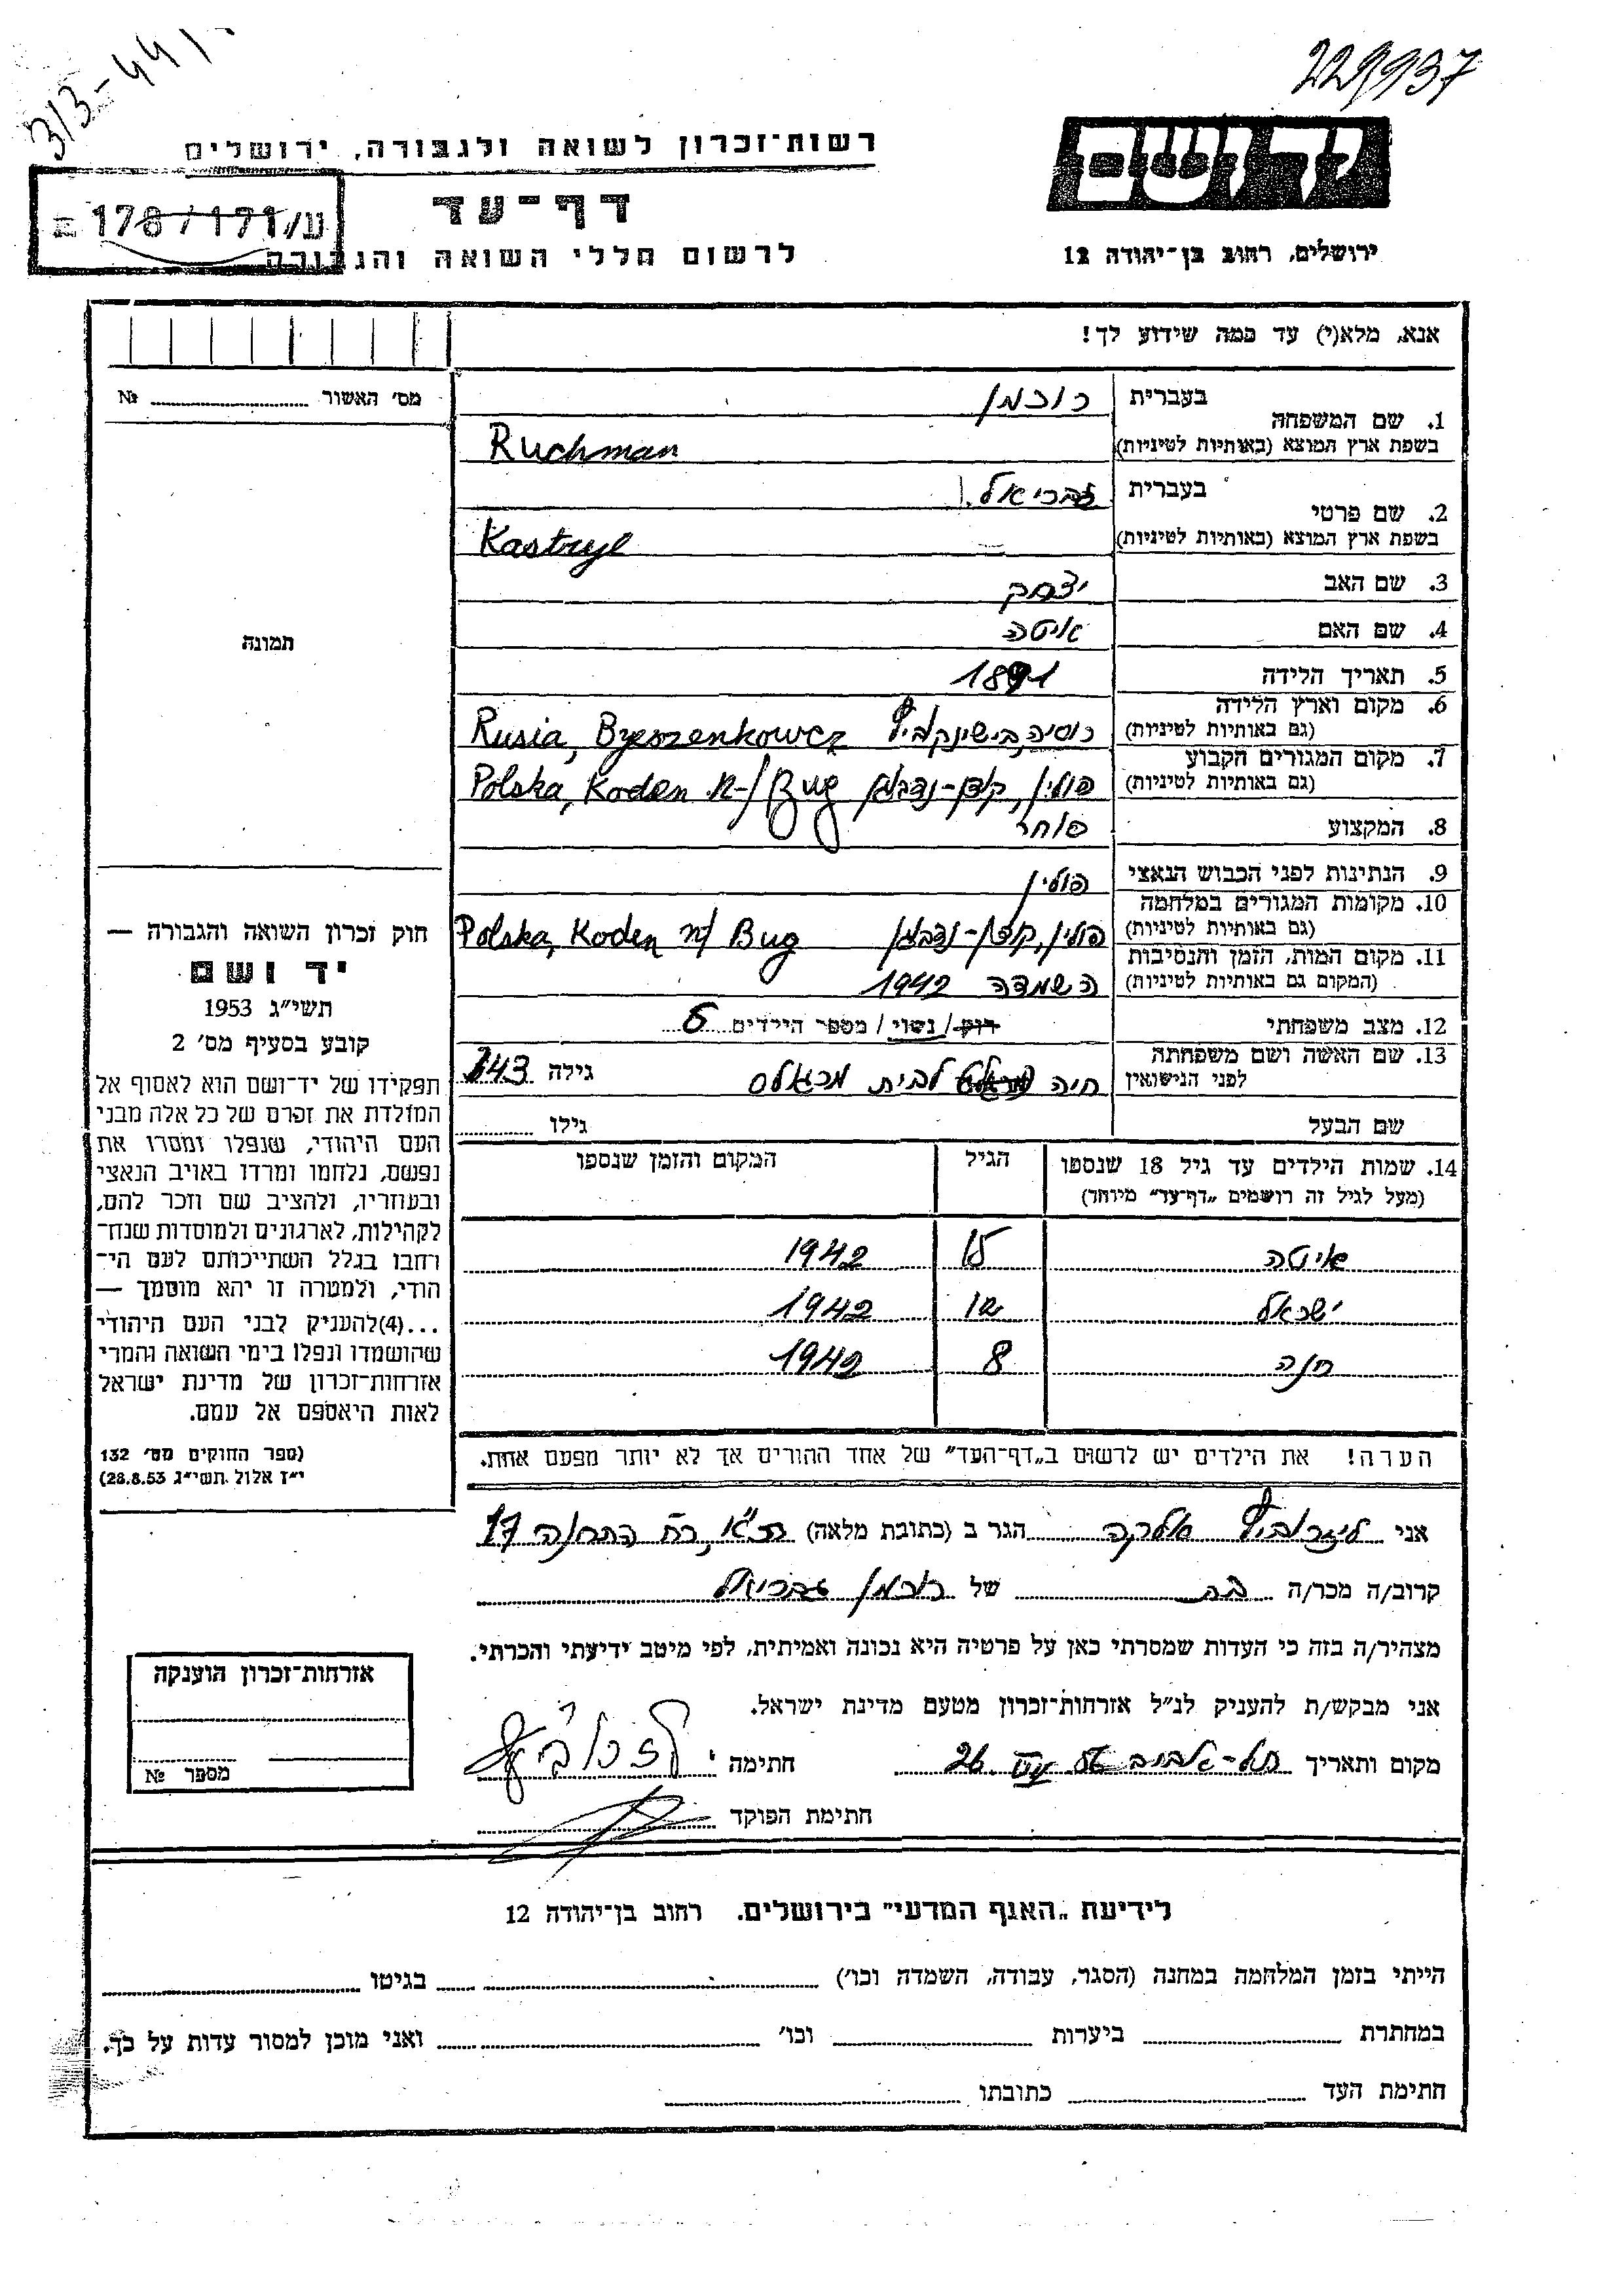 229937
313-44
רשות־זכרון לשואה ולגבורה, ירושלים
יד ושם
דף־עד
178/171/ע
לרשום חללי השואה והגבורה
ירושלים, רחוב בן־יהודה 12
אנא, מלא(י) עד כמה שידוע לך!
מס׳ האשור № 
1. שם המשפחה
בעברית רוכמן
בשפת ארץ המוצא (באותיות לטיניות) Ruchman
2. שם פרטי
בעברית גבריאל
בשפת ארץ המוצא (באותיות לטיניות) Kastryl
3. שם האב יצחק
4. שם האם איטה
תמונה
5. תאריך הלידה 1891
6. מקום וארץ הלידה
(גם באותיות לטיניות) רוסיה, בישינקוביץ Rusia, Byeszenkowcz
7. מקום המגורים הקבוע
(גם באותיות לטיניות) פולין, קודן-נדבוגן Polska, Koden n-/Bug
8. המקצוע סוחר
9. הנתינות לפני הכבוש הנאצי פולין
10. מקומות המגורים במלחמה
(גם באותיות לטיניות) פולין, קודן-נדבוגן Polska, Koden n/ Bug
11. מקום המות, הזמן והנסיבות
(המקום גם באותיות לטיניות) השמדה 1942
12. מצב משפחתי רוק / נשוי / מספר הילדים 6
13. שם האשה ושם משפחתה
לפני הנישואין חיה לבית מרגאלס גילה 43
שם הבעל גילו
14. שמות הילדים עד גיל 18 שנספו הגיל המקום והזמן שנספו
(מעל לגיל זה רושמים „דף־עד״ מיוחד)
איטה 15 1942
ישראל 12 1942
חנה 8 1942
הערה! את הילדים יש לרשום ב„דף־העד״ של אחד ההורים אך לא יותר מפעם אחת.
חוק זכרון השואה והגבורה —
יד ושם
תשי״ג 1953
קובע בסעיף מס׳ 2
תפקידו של יד־ושם הוא לאסוף אל
המולדת את זכרם של כל אלה מבני
העם היהודי, שנפלו ומסרו את
נפשם, נלחמו ומרדו באויב הנאצי
ובעוזריו, ולהציב שם וזכר להם,
לקהילות, לארגונים ולמוסדות שנח־
רחבו בגלל השתייכותם לעם הי־
הודי, ולמטרה זו יהא מוסמך —
...(4)להעניק לבני העם היהודי
שהושמדו ונפלו בימי השואה והמרי
אזרחות־זכרון של מדינת ישראל
לאות היאספם אל עמם.
(ספר החוקים מס׳ 132
י״ז אלול תשי״ג 28.8.53)
אני אלקה הגר ב (כתובת מלאה) ת״א, רח התחנה 17
קרוב/ה מכר/ה בת של רוכמן גבריאל
מצהיר/ה בזה כי העדות שמסרתי כאן על פרטיה היא נכונה ואמיתית, לפי מיטב ידיעתי והכרתי.
אני מבקש/ת להעניק לנ״ל אזרחות־זכרון מטעם מדינת ישראל.
מקום ותאריך תל-אביב 26 חתימה
חתימת הפוקד
אזרחות־זכרון הוענקה
מספר №
לידיעת „האגף המדעי״ בירושלים. רחוב בן־יהודה 12
הייתי בזמן המלחמה במחנה (הסגר, עבודה, השמדה וכו׳) בגיטו
במחתרת ביערות וכו׳ ואני מוכן למסור עדות על כך.
חתימת העד כתובתו